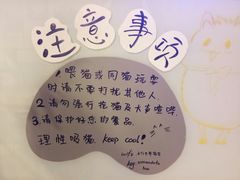 注意事项
1. 喂猫或同猫玩耍
时请不要打扰其他人
2. 请勿强行抱猫及大声喧哗
3. 请保护好您的食品。
理性吸猫. keep cool!